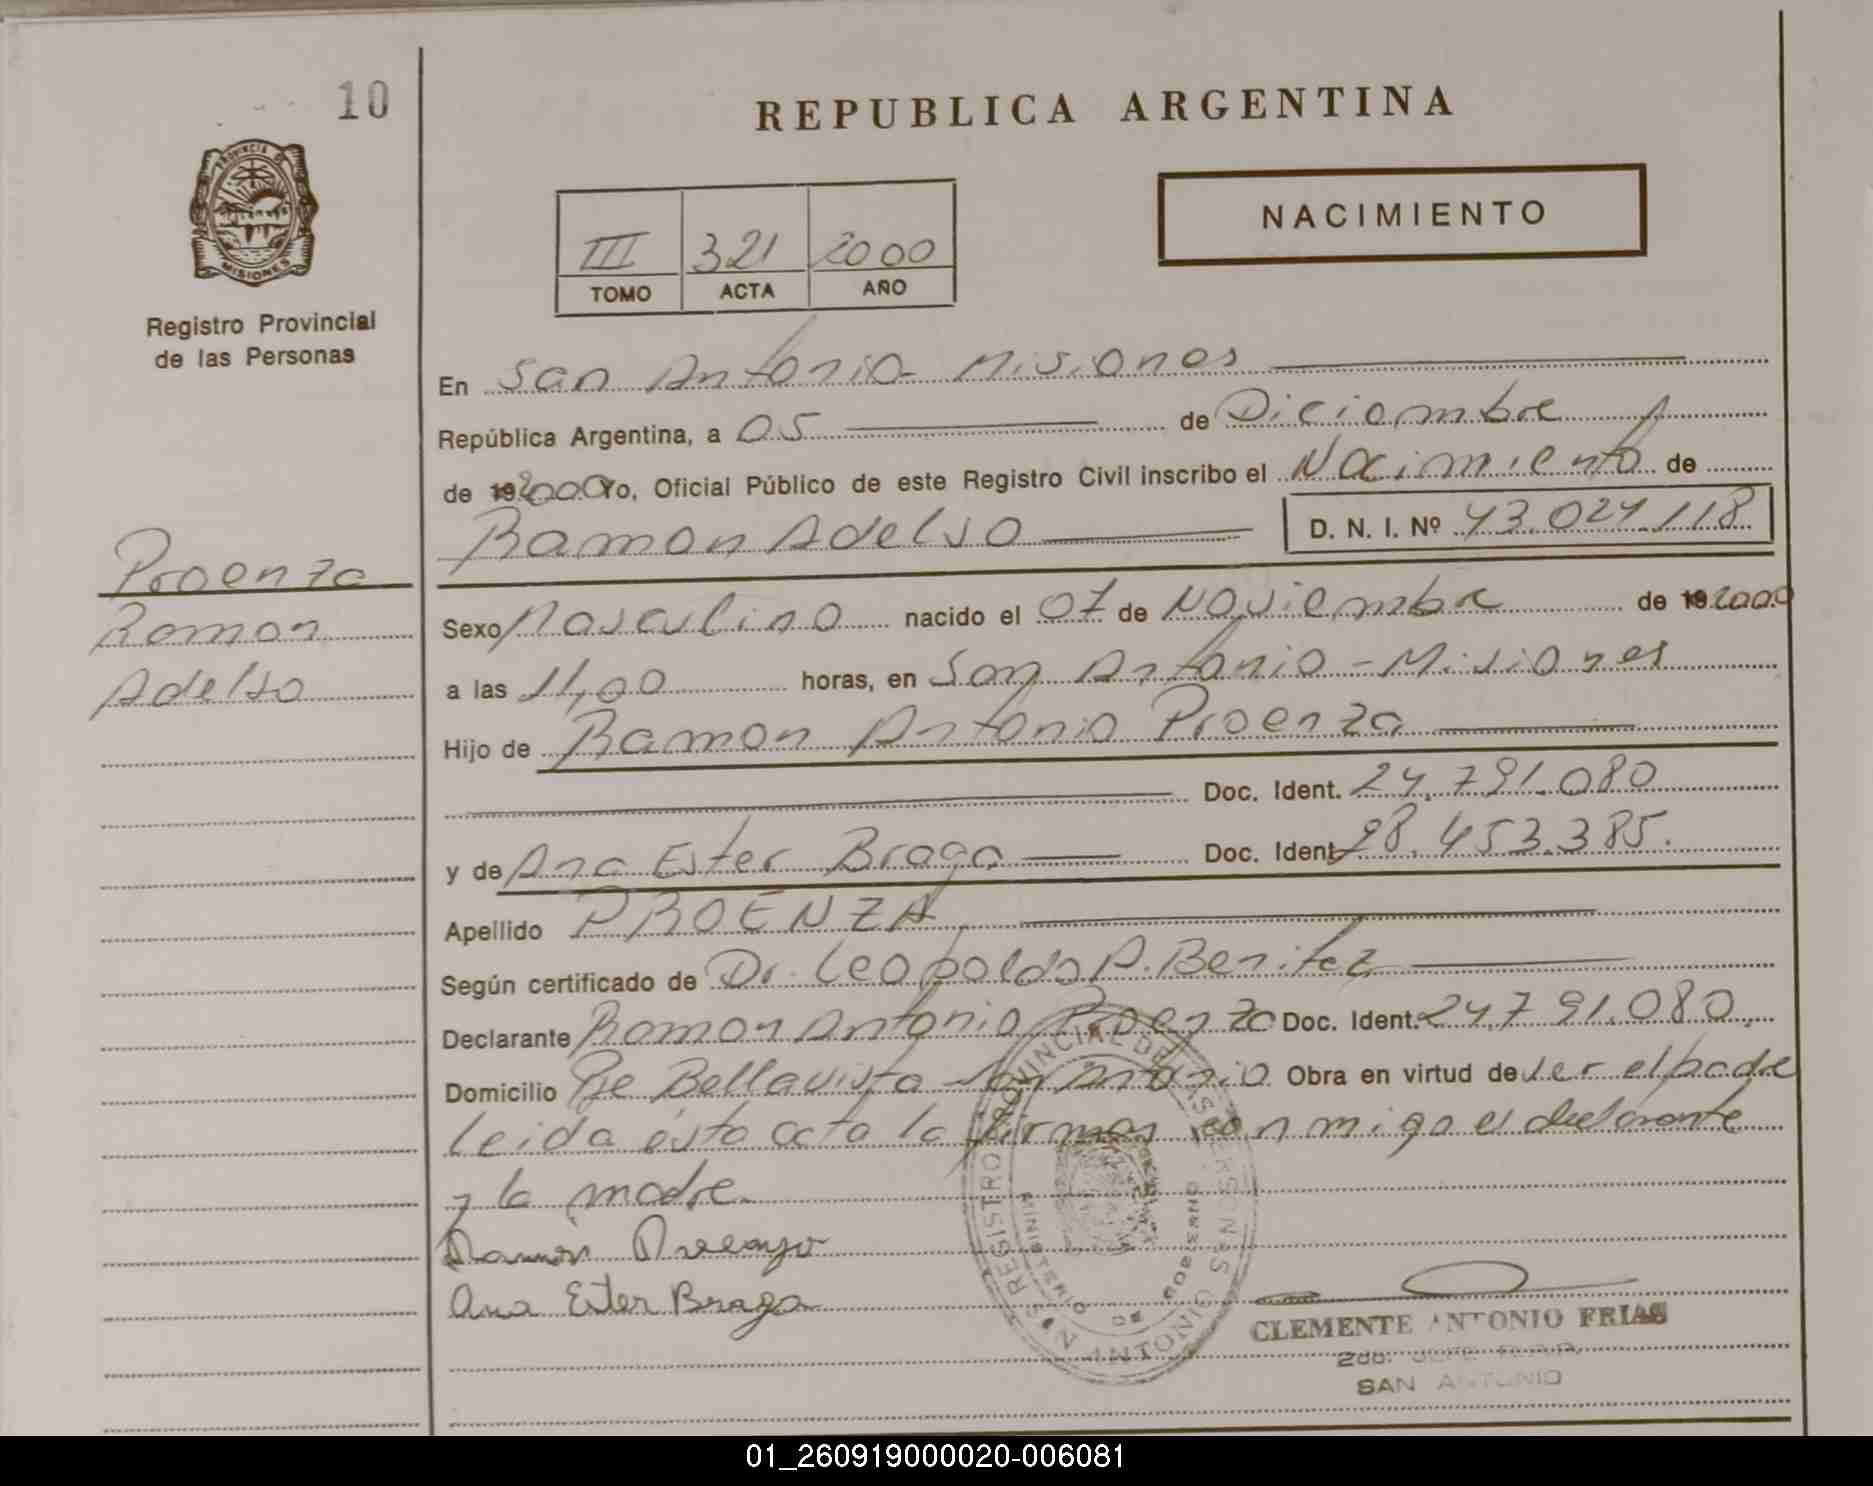 10
REPUBLICA ARGENTINA
PROVINCIA DE
MISIONES
Registro Provincial
de las Personas
NACIMIENTO
III 321 2000
TOMO ACTA AÑO
En San Antonio - Misiones
República Argentina, a 05 de Diciembre
de 192000 Yo, Oficial Público de este Registro Civil inscribo el Nacimiento de
Ramon Adelso D. N. I. Nº 43.024.118
Proenza
Ramon
Adelso
Sexo Masculino nacido el 07 de Noviembre de 192000
a las 11,00 horas, en San Antonio - Misiones
Hijo de Ramon Antonio Proenza
Doc. Ident. 24.791.080
y de Ana Ester Braga Doc. Ident 28.453.385.
Apellido PROENZA
Según certificado de Dr. Leopoldo A. Benitez
Declarante Ramon Antonio Proenza Doc. Ident. 24.791.080.
Domicilio Pje Bellavista San Antonio Obra en virtud de ser el padre
leida ésta acta la firman conmigo el declarante
y la madre
Ramón
Ana Ester Braga
REGISTRO PROVINCIAL DE LAS PERSONAS
MINISTERIO DE GOBIERNO
SAN ANTONIO
CLEMENTE ANTONIO FRIAS
2do. JEFE
SAN ANTONIO
01_260919000020-006081